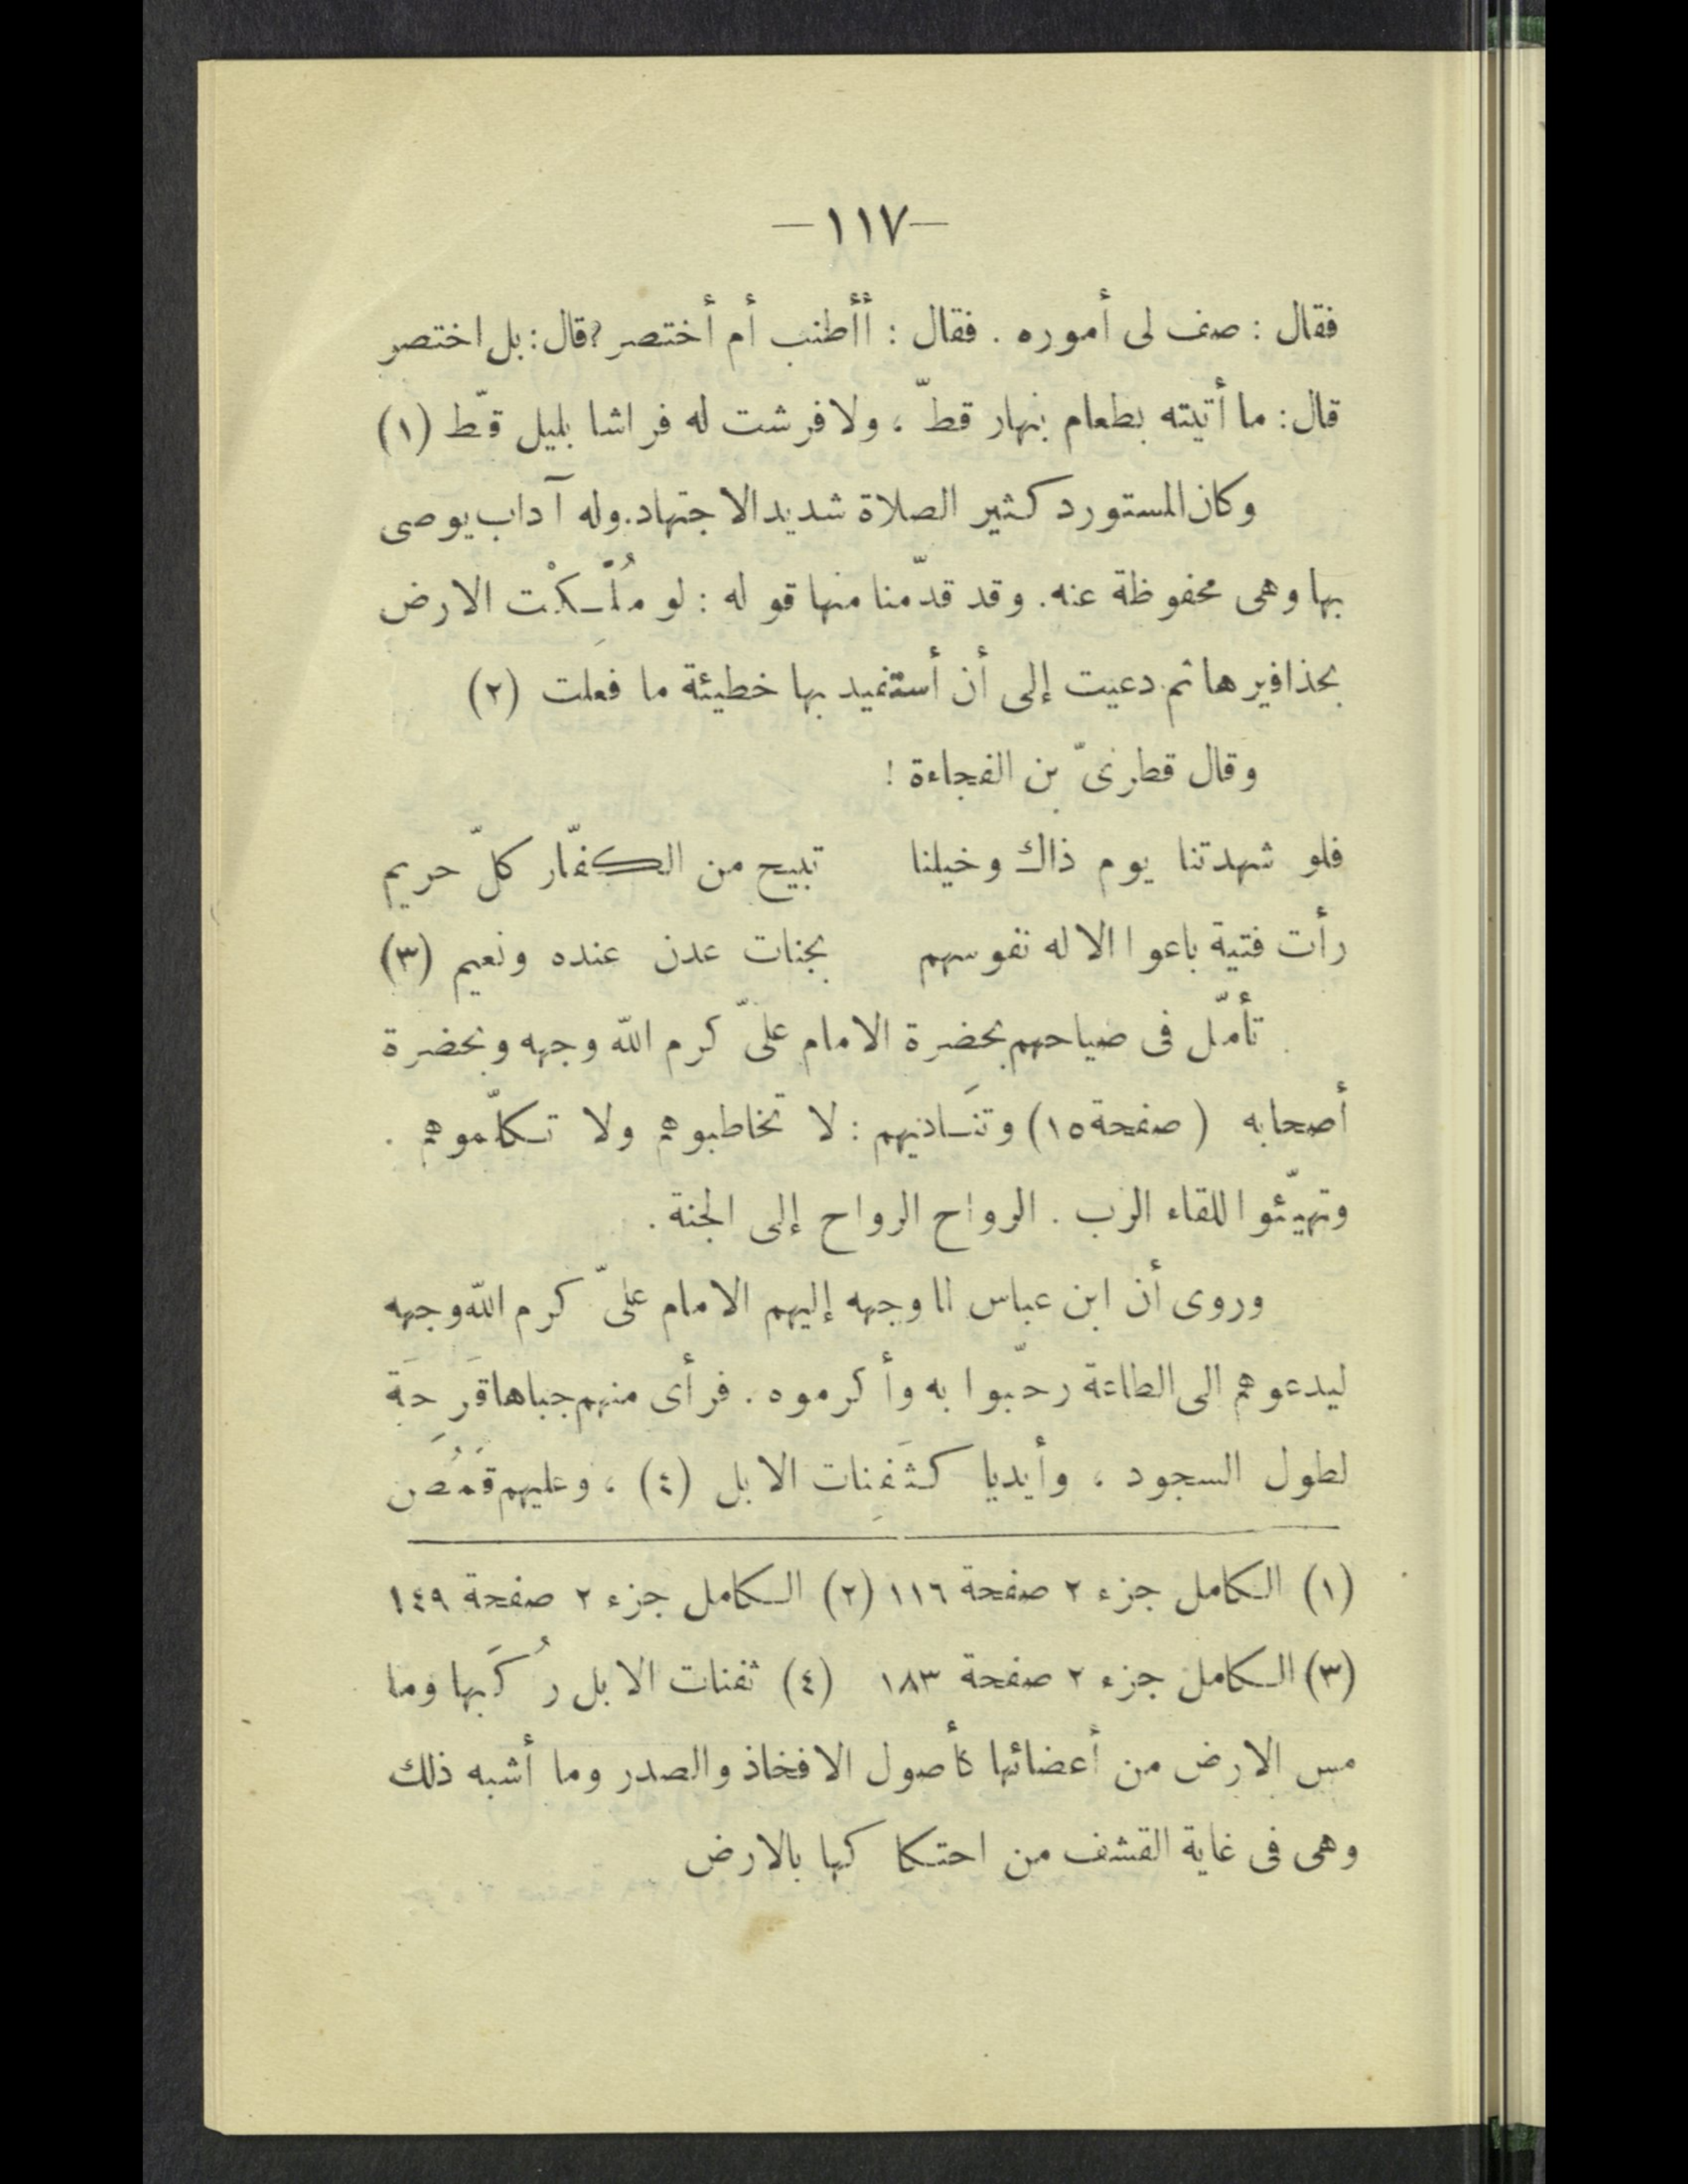 —١١٧—
فقال : صف لى أموره . فقال : أأطنب أم أختصر ? قال : بل اختصر
قال : ما أتيته بطعام بنهار قطّ ، ولا فرشت له فراشا بليل قطّ (١)
وكان المستورد كثير الصلاة شديد الاجتهاد . وله آداب يوصى
بها وهى محفوظة عنه . وقد قدّمنا منها قوله : لو مُلِّكْت الارض
بحذافيرها ثم دعيت إلى أن أستفيد بها خطيئة ما فعلت (٢)
وقال قطرىّ بن الفجاءة !
فلو شهدتنا يوم ذاك وخيلنا تبيح من الكفّار كلّ حريم
رأت فتية باعوا الاله نفوسهم بجنات عدن عنده ونعيم (٣)
تأمّل فى صياحهم بحضرة الامام علىّ كرم اللّه وجهه وبحضرة
أصحابه ( صفحة ١٥) وتنَـاديهم : لا تخاطبوهم ولا تكلّموهم .
وتهيّئوا للقاء الرب . الرواح الرواح إلى الجنة .
وروى أن ابن عباس لما وجهه إليهم الامام علىّ كرم اللّه وجهه
ليدعوهم الى الطاعة رحّبوا به وأكرموه . فرأى منهم جباها قَرِحَة
لطول السجود ، وأيديا كثَفِنات الابل (٤) ، وعليهم قَمُصَ
(١) الكامل جزء ٢ صفحة ١١٦ (٢) الكامل جزء ٢ صفحة ١٤٩
(٣) الكامل جزء ٢ صفحة ١٨٣ (٤) ثفنات الابل رُكَبها وما
مس الارض من أعضائها كأصول الافخاذ والصدر وما أشبه ذلك
وهى فى غاية القشف من احتكاكها بالارض